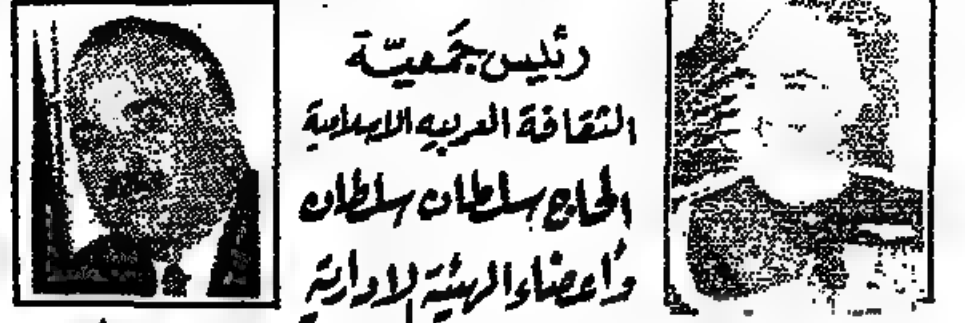 رئيس جمعيّة
الثقافة العربيه الاسلامية
الحاج سلطان سلطان
وأعضاء الهيئة الادارية